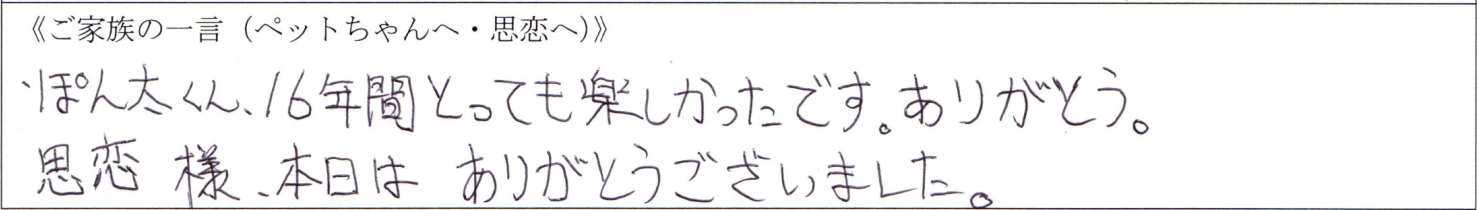 《ご家族の一言（ペットちゃんへ・思恋へ）》
ぽん太くん、16年間とっても楽しかったです。ありがとう。
思恋 様、本日は ありがとうございました。